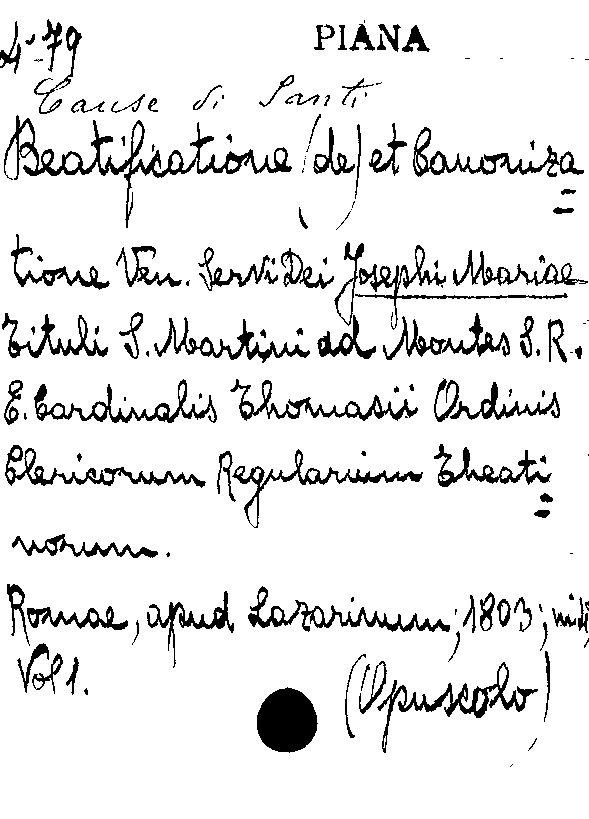 4-79 PIANA
Cause di Santi
Beatificatione (de) et Canoniza=
tione Ven. Servi Dei Josephi Mariae
Tituli S. Martini ad Montes S. R.
E. Cardinalis Thomasii Ordinis
Clericorum Regularium Theati=
norum.
Romae, apud Lazarinum; 1803;
Vol 1. (Opuscolo)